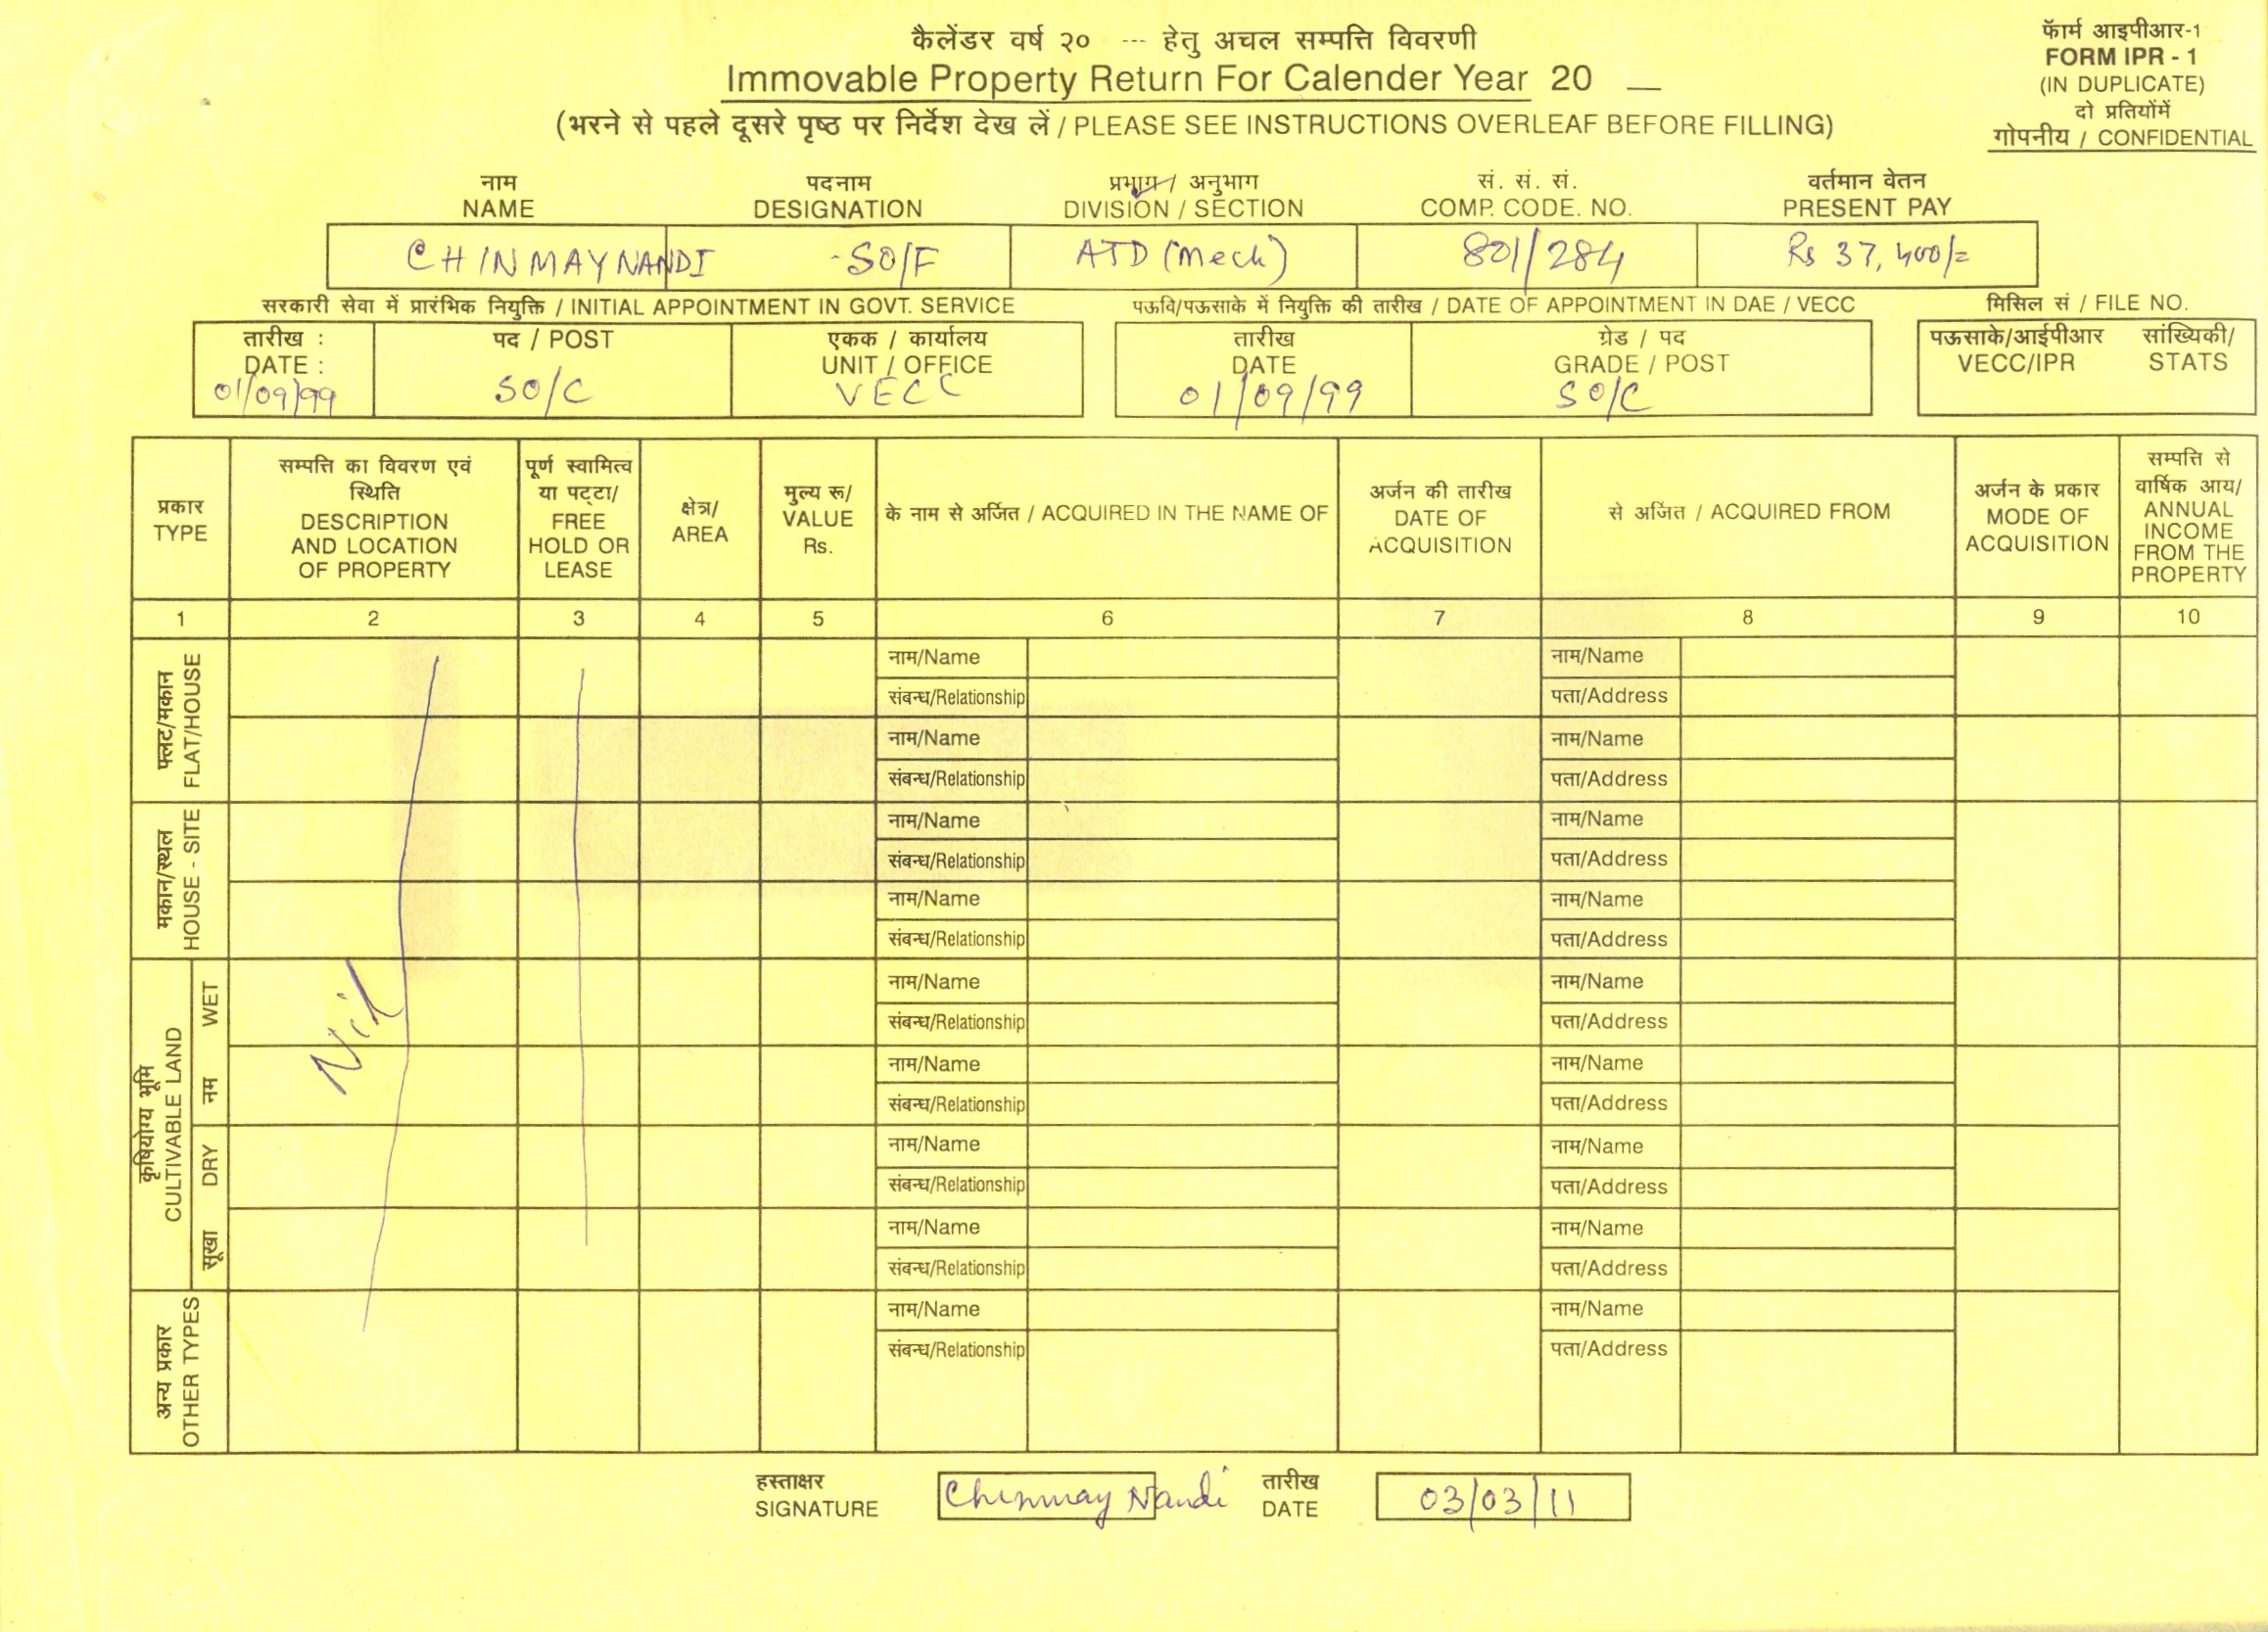 कैलेंडर वर्ष २० --- हेतु अचल सम्पत्ति विवरणी
Immovable Property Return For Calender Year 20 __
(भरने से पहले दूसरे पृष्ठ पर निर्देश देख लें / PLEASE SEE INSTRUCTIONS OVERLEAF BEFORE FILLING)
फॅार्म आइपीआर-1
FORM IPR - 1
(IN DUPLICATE)
दो प्रतियोंमें
गोपनीय / CONFIDENTIAL
नाम पदनाम प्रभाग / अनुभाग सं. सं. सं. वर्तमान वेतन
NAME DESIGNATION DIVISION / SECTION COMP. CODE. NO. PRESENT PAY
CHINMAY NANDI SO/F ATD (Mech) 801/284 Rs 37,400/=
सरकारी सेवा में प्रारंभिक नियुक्ति / INITIAL APPOINTMENT IN GOVT. SERVICE पऊवि/पऊसाके में नियुक्ति की तारीख / DATE OF APPOINTMENT IN DAE / VECC मिसिल सं / FILE NO.
तारीख : पद / POST एकक / कार्यालय तारीख ग्रेड / पद पऊसाके/आईपीआर सांख्यिकी/
DATE : UNIT / OFFICE DATE GRADE / POST VECC/IPR STATS
01/09/99 SO/C VECC 01/09/99 SO/C
प्रकार
TYPE
सम्पत्ति का विवरण एवं
स्थिति
DESCRIPTION
AND LOCATION
OF PROPERTY
पूर्ण स्वामित्व
या पट्टा/
FREE
HOLD OR
LEASE
क्षेत्र/
AREA
मुल्य रू/
VALUE
Rs.
के नाम से अर्जित / ACQUIRED IN THE NAME OF
अर्जन की तारीख
DATE OF
ACQUISITION
से अर्जित / ACQUIRED FROM
अर्जन के प्रकार
MODE OF
ACQUISITION
सम्पत्ति से
वार्षिक आय/
ANNUAL
INCOME
FROM THE
PROPERTY
1 2 3 4 5 6 7 8 9 10
फ्लट/मकान
FLAT/HOUSE
नाम/Name नाम/Name
संबन्ध/Relationship पता/Address
नाम/Name नाम/Name
संबन्ध/Relationship पता/Address
मकान/स्थल
HOUSE - SITE
नाम/Name नाम/Name
संबन्ध/Relationship पता/Address
नाम/Name नाम/Name
संबन्ध/Relationship पता/Address
कृषियोग्य भूमि
CULTIVABLE LAND
नम WET
Nil
नाम/Name नाम/Name
संबन्ध/Relationship पता/Address
नाम/Name नाम/Name
संबन्ध/Relationship पता/Address
सूखा DRY
नाम/Name नाम/Name
संबन्ध/Relationship पता/Address
नाम/Name नाम/Name
संबन्ध/Relationship पता/Address
अन्य प्रकार
OTHER TYPES
नाम/Name नाम/Name
संबन्ध/Relationship पता/Address
हस्ताक्षर तारीख
SIGNATURE Chinmay Nandi DATE 03/03/11